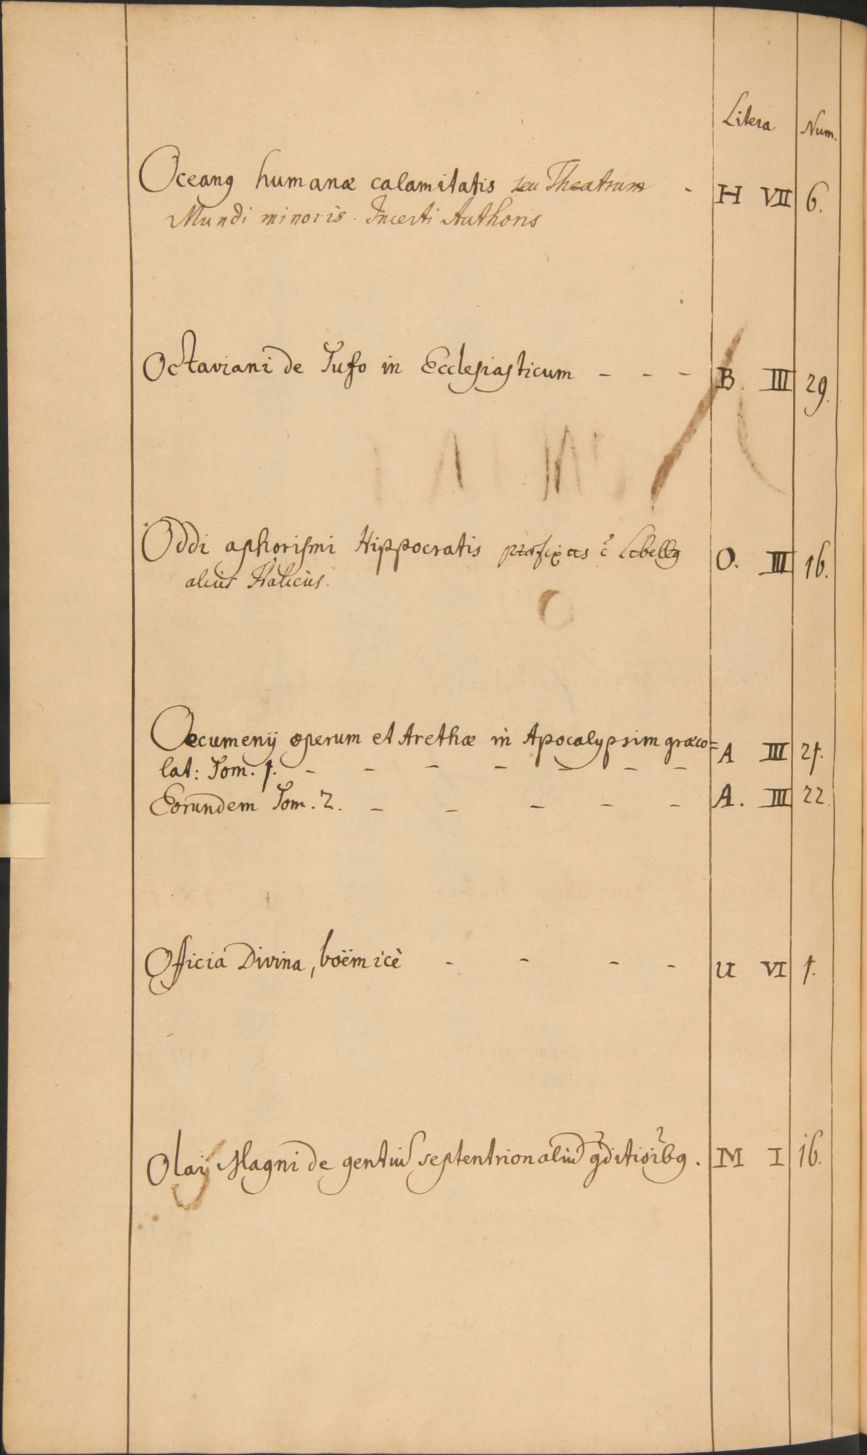 Litera Num.
Oceanꝰ humanæ calamitatis seu Theatrum - H VII 6.
Mundi minoris. Incerti Authoris
Octaviani de Tufo in Ecclesiasticum - - - B. III 29.
Oddi aphorismi Hippocratis præfixus ē Libellꝰ O. III 16.
alius Italicus.
Oecumenij operum et Arethæ in Apocalypsim græco= A III 21.
lat: Tom. 1. - - - - - - -
Eorundem Tom. 2. - - - - - A. III 22.
Officia Divina, boëmicè - - - - U VI 1.
Olaj Magni de gentiū septentrionaliū ꝯditioībꝰ. M I 16.